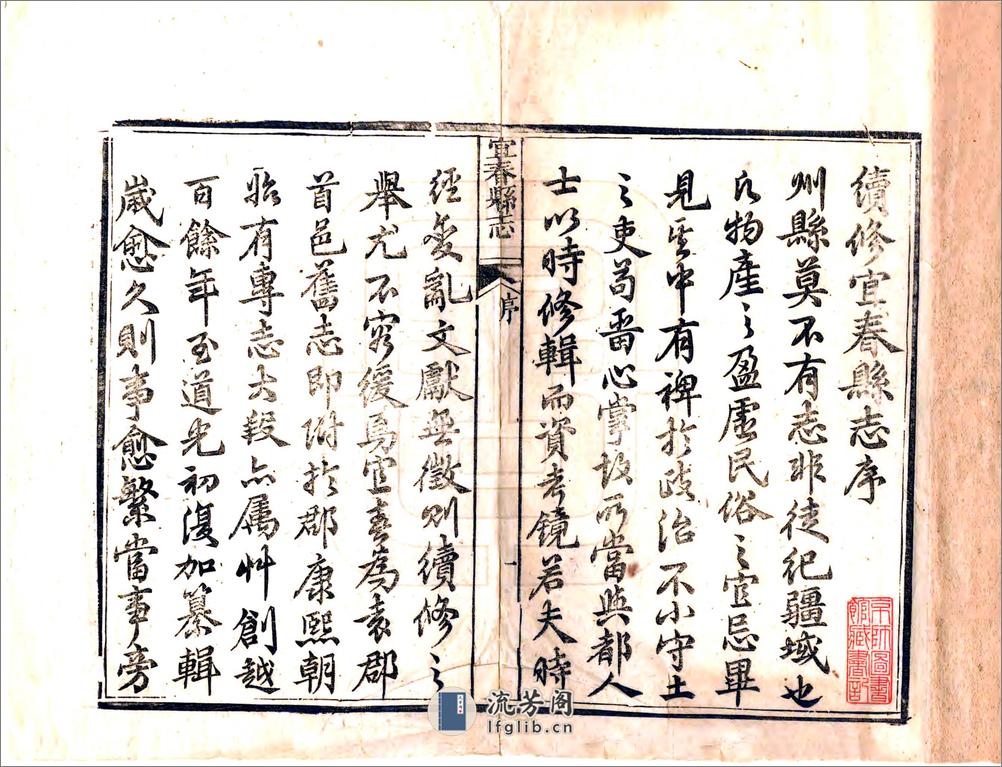 續修宜春縣志序
州縣莫不有志非徒紀疆域也
凡物產之盈虛民俗之宜忌畢
見其中有裨於政治不小守土
之吏苟留心掌故所當與都人
士以時修輯而資考鏡若夫時
宜春縣志
序
一
經變亂文獻無徵則續修之
舉尤不容緩焉宜春為袁郡
首邑舊志即附於郡康熙朝
始有專志大段亦屬艸創越
百餘年至道光初復加纂輯
歲愈久則事愈繁當事旁
流芳阁
lfglib.cn